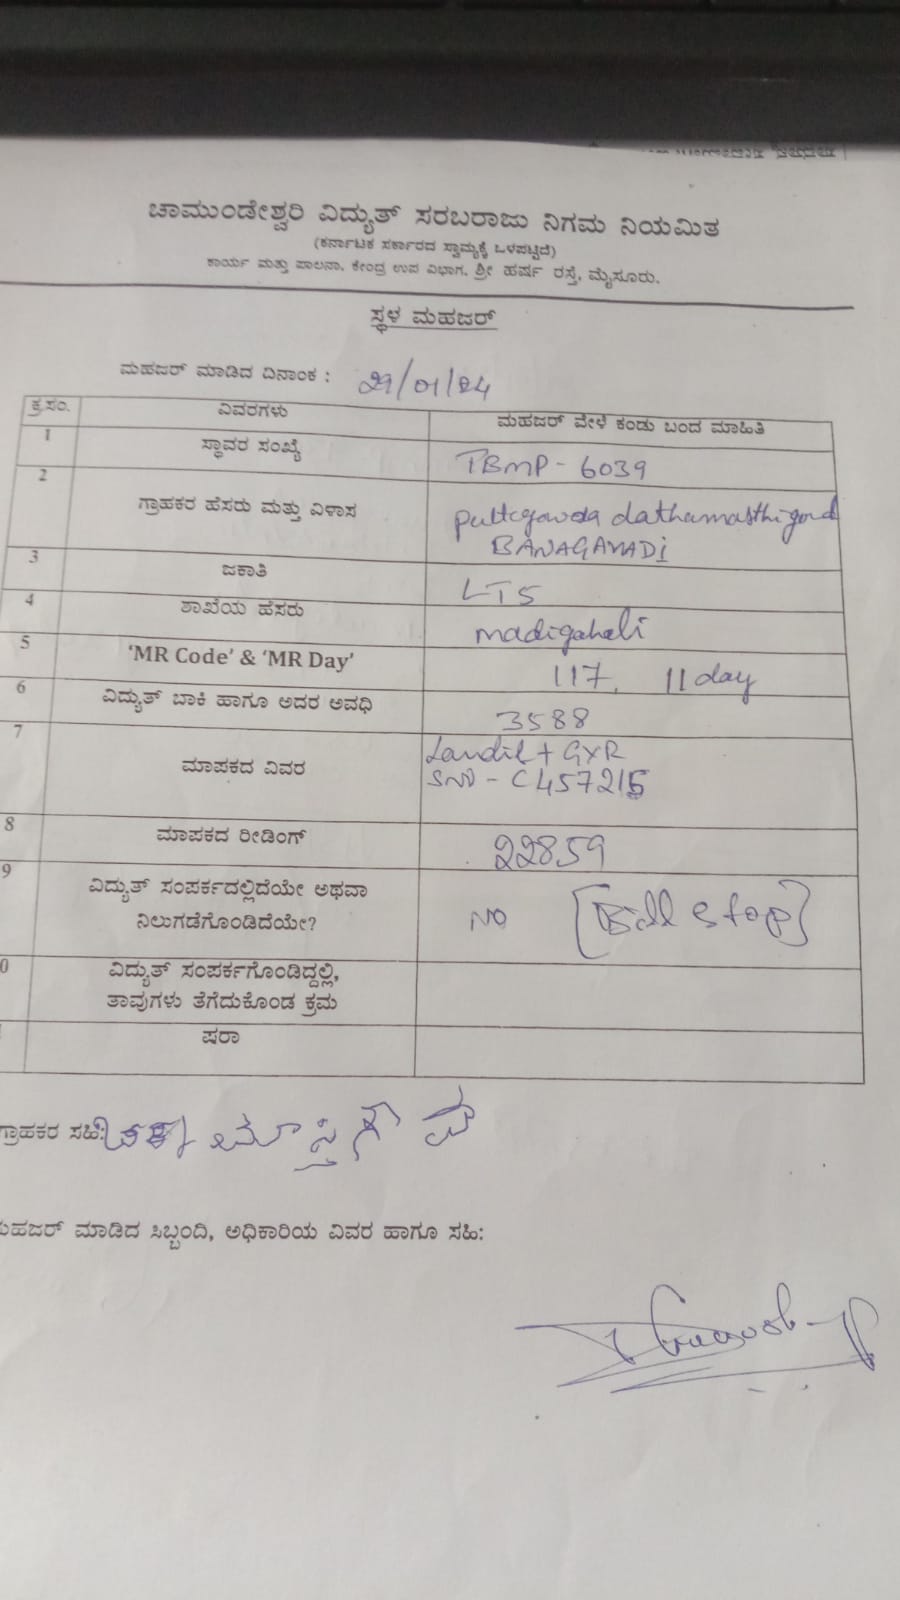 ಚಾಮುಂಡೇಶ್ವರಿ ವಿದ್ಯುತ್ ಸರಬರಾಜು ನಿಗಮ ನಿಯಮಿತ
(ಕರ್ನಾಟಕ ಸರ್ಕಾರದ ಸ್ವಾಮ್ಯಕ್ಕೆ ಒಳಪಟ್ಟಿದೆ)
ಕಾರ್ಯ ಮತ್ತು ಪಾಲನಾ, ಕೇಂದ್ರ ಉಪ ವಿಭಾಗ, ಶ್ರೀ ಹರ್ಷ ರಸ್ತೆ, ಮೈಸೂರು.
ಸ್ಥಳ ಮಹಜರ್
ಮಹಜರ್ ಮಾಡಿದ ದಿನಾಂಕ : 29/01/24
ಕ್ರ.ಸಂ. ವಿವರಗಳು ಮಹಜರ್ ವೇಳೆ ಕಂಡು ಬಂದ ಮಾಹಿತಿ
1 ಸ್ಥಾವರ ಸಂಖ್ಯೆ TBMP - 6039
2 ಗ್ರಾಹಕರ ಹೆಸರು ಮತ್ತು ವಿಳಾಸ puttegowda
BANAGAVADI
3 ಜಕಾತಿ LT5
4 ಶಾಖೆಯ ಹೆಸರು madigahali
5 'MR Code' & 'MR Day' 117, 11 day
6 ವಿದ್ಯುತ್ ಬಾಕಿ ಹಾಗೂ ಅದರ ಅವಧಿ 3588
7 ಮಾಪಕದ ವಿವರ Landit + GYR
SNO - C457215
8 ಮಾಪಕದ ರೀಡಿಂಗ್ 22859
9 ವಿದ್ಯುತ್ ಸಂಪರ್ಕದಲ್ಲಿದೆಯೇ ಅಥವಾ
ನಿಲುಗಡೆಗೊಂಡಿದೆಯೇ? NO [Bill stop]
0 ವಿದ್ಯುತ್ ಸಂಪರ್ಕಗೊಂಡಿದ್ದಲ್ಲಿ,
ತಾವುಗಳು ತೆಗೆದುಕೊಂಡ ಕ್ರಮ
ಷರಾ
ಗ್ರಾಹಕರ ಸಹಿ:
ಮಹಜರ್ ಮಾಡಿದ ಸಿಬ್ಬಂದಿ, ಅಧಿಕಾರಿಯ ವಿವರ ಹಾಗೂ ಸಹಿ: